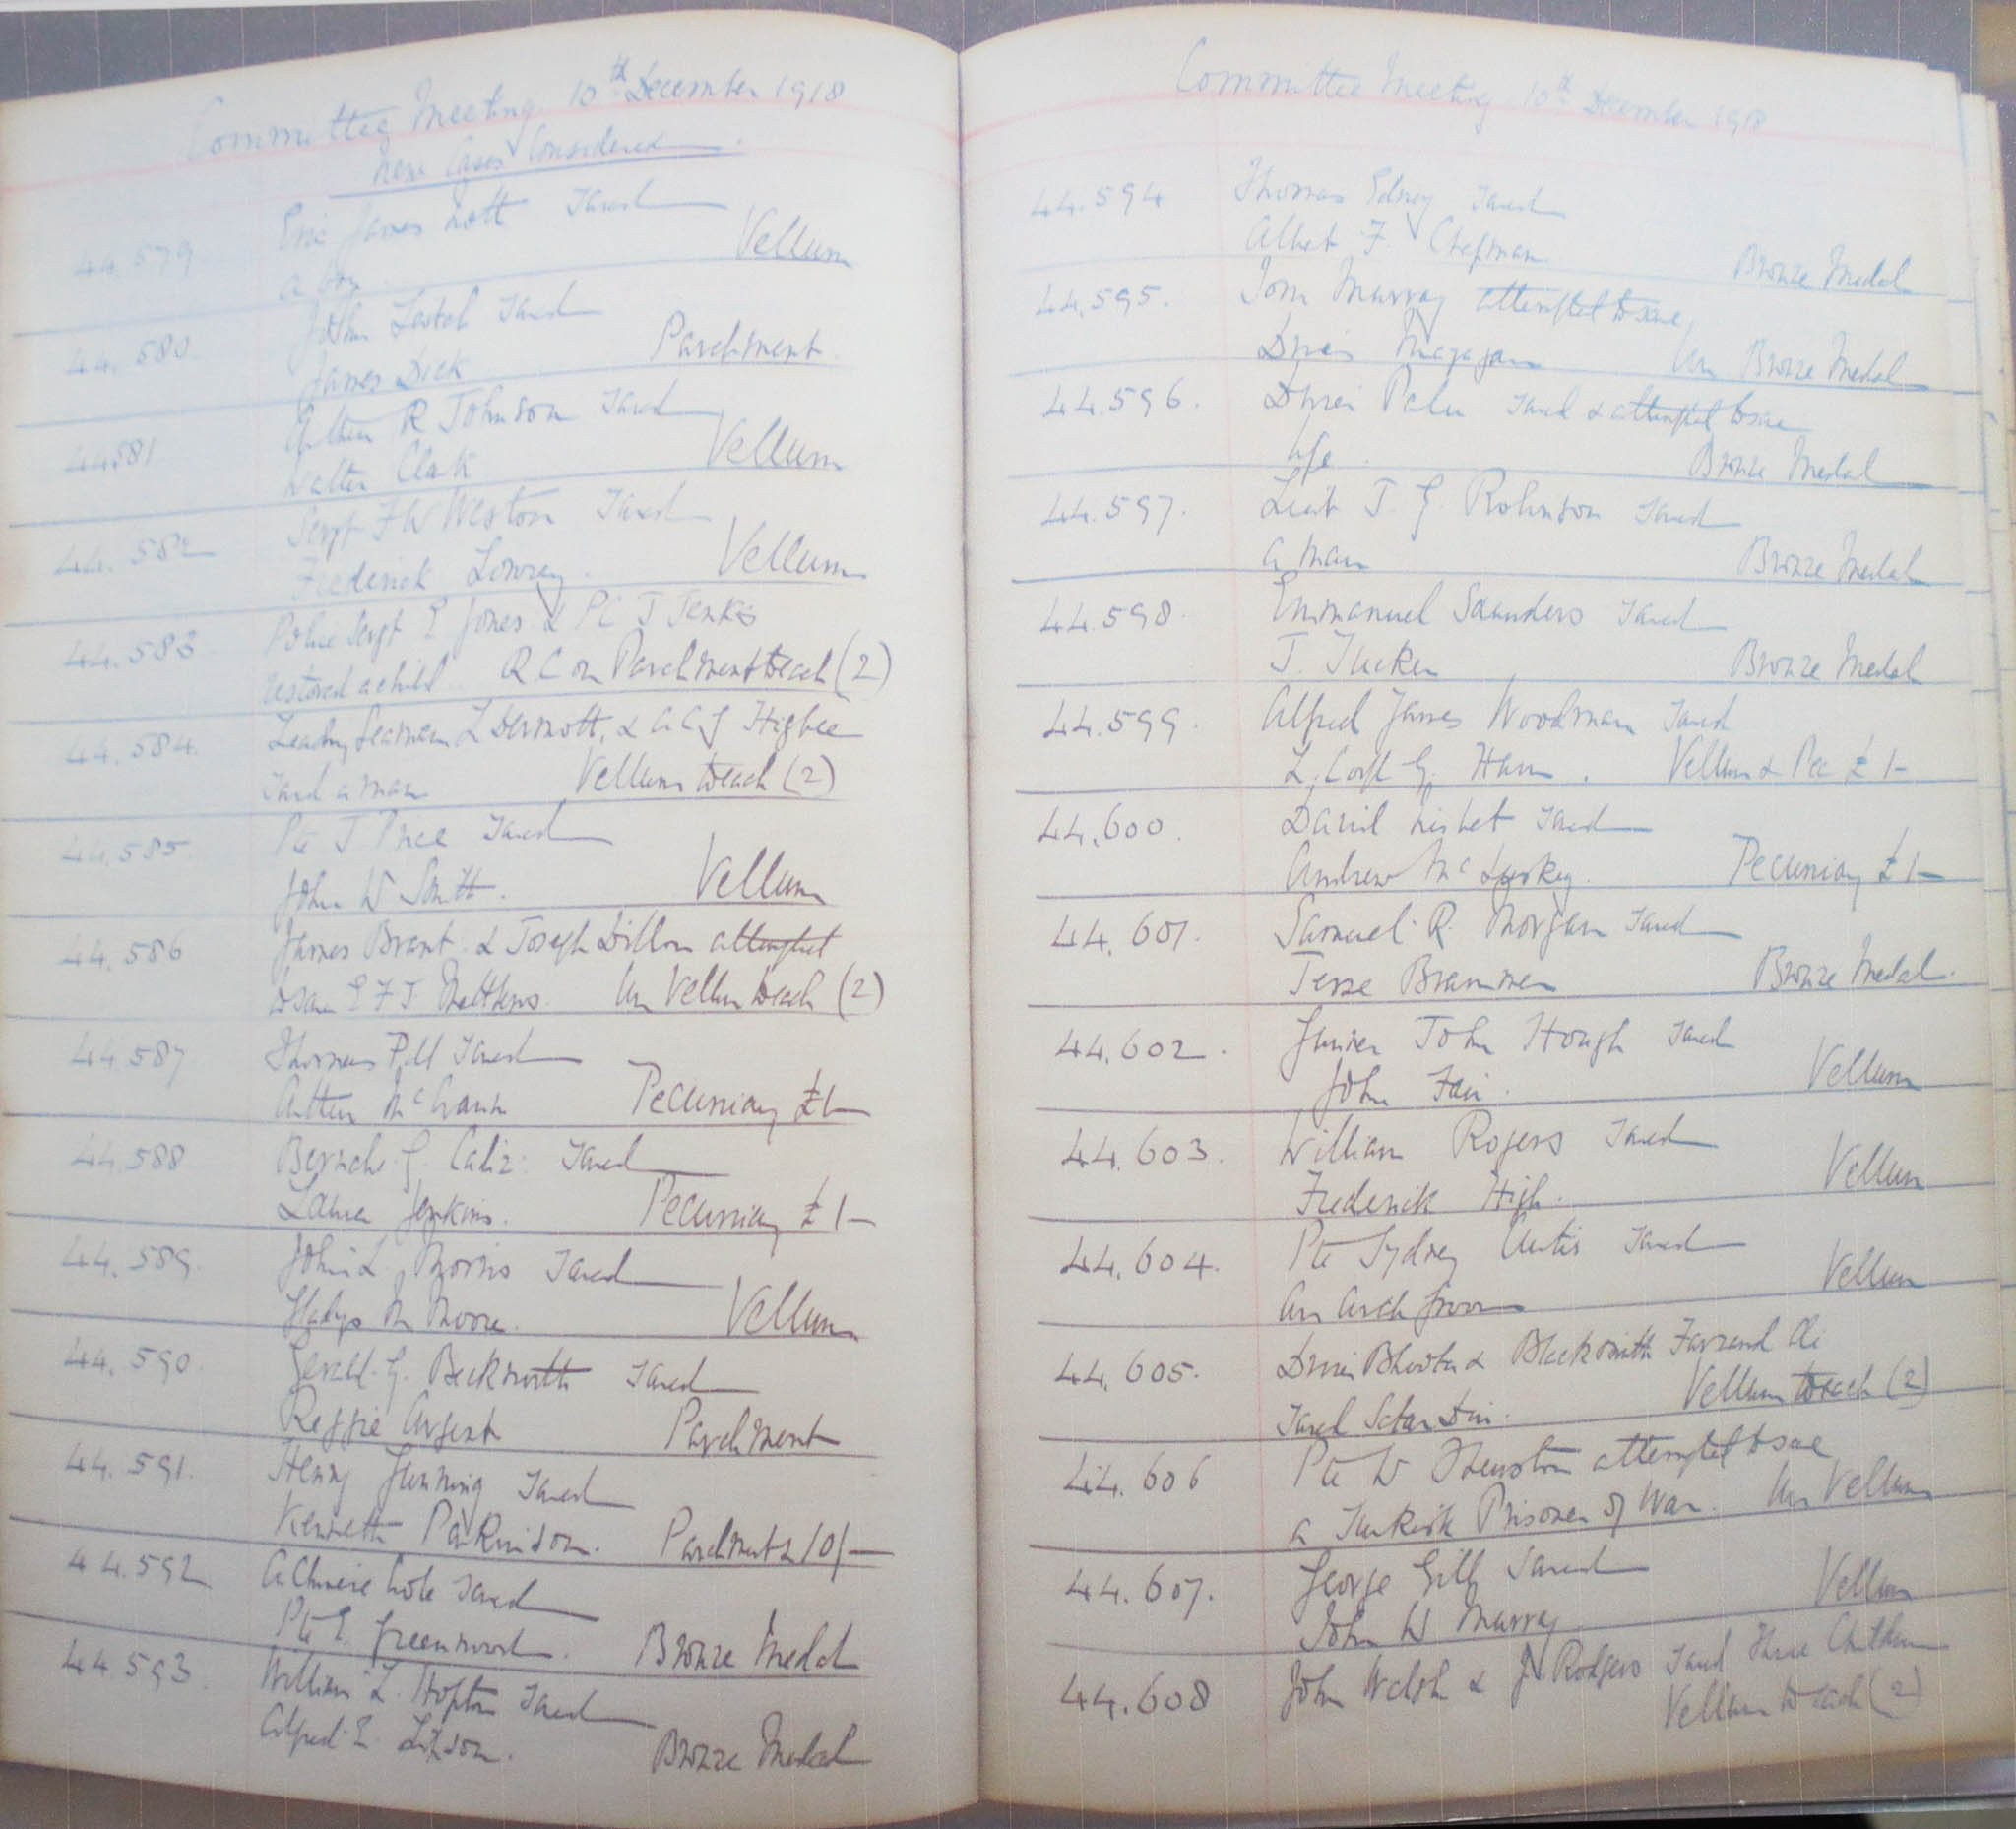 Committee Meeting 10th December 1918
New Cases Considered.
44.579 Eric James Nott saved
a boy Vellum
44.580. John Lastal saved
James Dick Parchment
44581 Arthur R Johnson saved
Walter Clark Vellum
44.582 Sergt F W Weston saved
Frederick Lowrey. Vellum
44.583 Police Sergt E Jones & PC J Jenks
restored a child R C on Parchment to each (2)
44.584. Leading Seaman L Dermott, & A C J Higbee
saved a man Vellum to each (2)
44.585 Pte J Price saved
John W Smith. Vellum
44.586 James Brant & Joseph Dillon attempted
to save E F J Matthews. Un Vellum to each (2)
44.587 Thomas Pill saved
Arthur McGrann Pecuniary £1-
44.588 G. Cadiz saved
Laura Jenkins. Pecuniary £1-
44.589. John L Morris saved
Gladys M Moore. Vellum
44.590. Gerald G. Beckwith saved
Reggie Argent Parchment
44.591. Henry Gunning saved
Kenneth Parkinson. Parchment & 10/-
44.592 A Chinese Cole saved
Pte E. Greenwood. Bronze Medal
44.593. William L. Hopton saved
Alfred E. Bronze Medal
Committee Meeting 10th December 1918
44.594 Thomas Edney saved
Albert F. Chapman Bronze Medal
44.595. Tom Murray attempted to save
Driver Un Bronze Medal
44.596. Driver Palu saved & attempted to save
life. Bronze Medal
44.597. Lieut J. G. Robinson saved
a man Bronze Medal
44.598. Emmanuel Saunders saved
J. Tucker Bronze Medal
44.599. Alfred James Woodman saved
L. Corpl G. Ham. Vellum & Pec £1-
44.600. David Nisbet saved
Andrew McLuskey. Pecuniary £1-
44.601. Samuel R. Morgan saved
Jesse Brammer Bronze Medal.
44.602. Gunner John Hough saved
John Fair. Vellum
44.603. William Rogers saved
Frederick High. Vellum
44.604. Pte Sydney Curtis saved
an Arab groom Vellum
44.605. Driver Bhoota & Blacksmith Farzand Ali
saved Satar Din. Vellum to each (2)
44.606 Pte W Theuston attempted to save
a Turkish Prisoner of War. Un Vellum
44.607. George Gill saved
John W Murray Vellum
44.608 John Walsh & J N Rodgers saved three Children
Vellum to each (2)